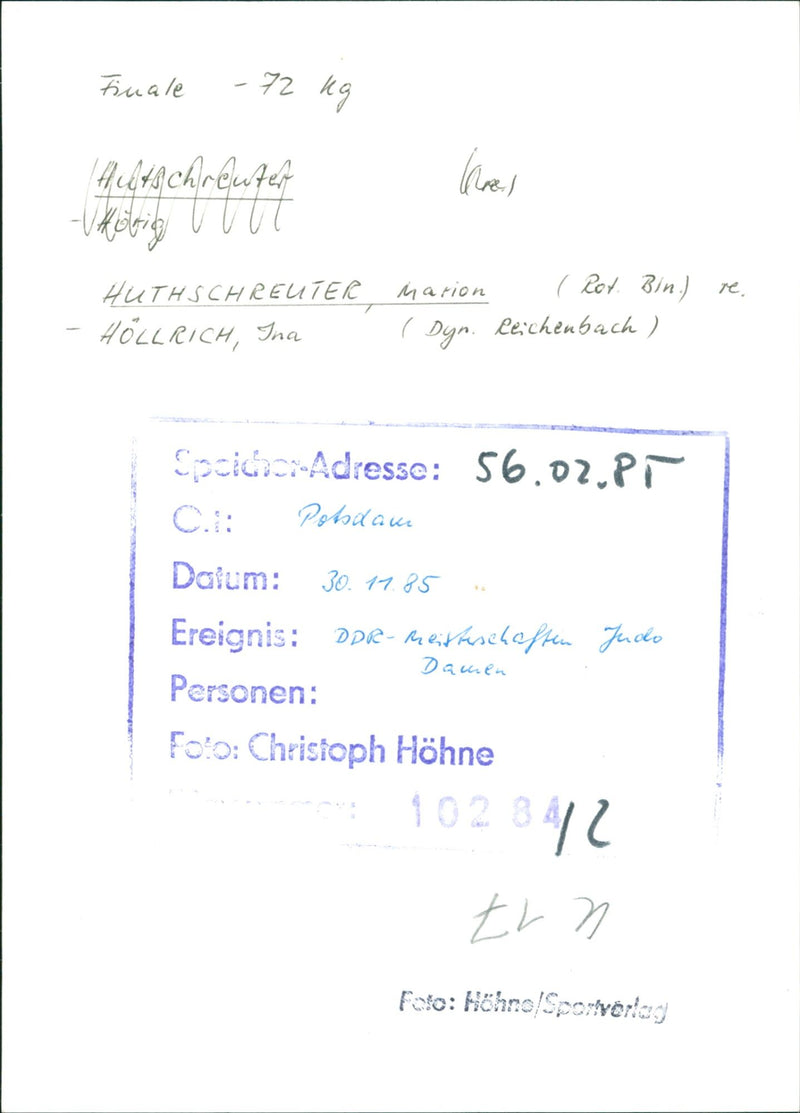 Finale - 72 kg
Hutschreuter
- Hörig
HUTHSCHREUTER, Marion (Rot. Bln.) re.
- HÖLLRICH, Ina (Dyn. Reichenbach)
Speicher-Adresse: 56.02.85
O.:
Potsdam
Datum: 30. 11. 85
Ereignis: DDR-Meisterschaften Judo
Damen
Personen:
Foto: Christoph Höhne
102 84/2
Foto: Höhne/Sportverlag